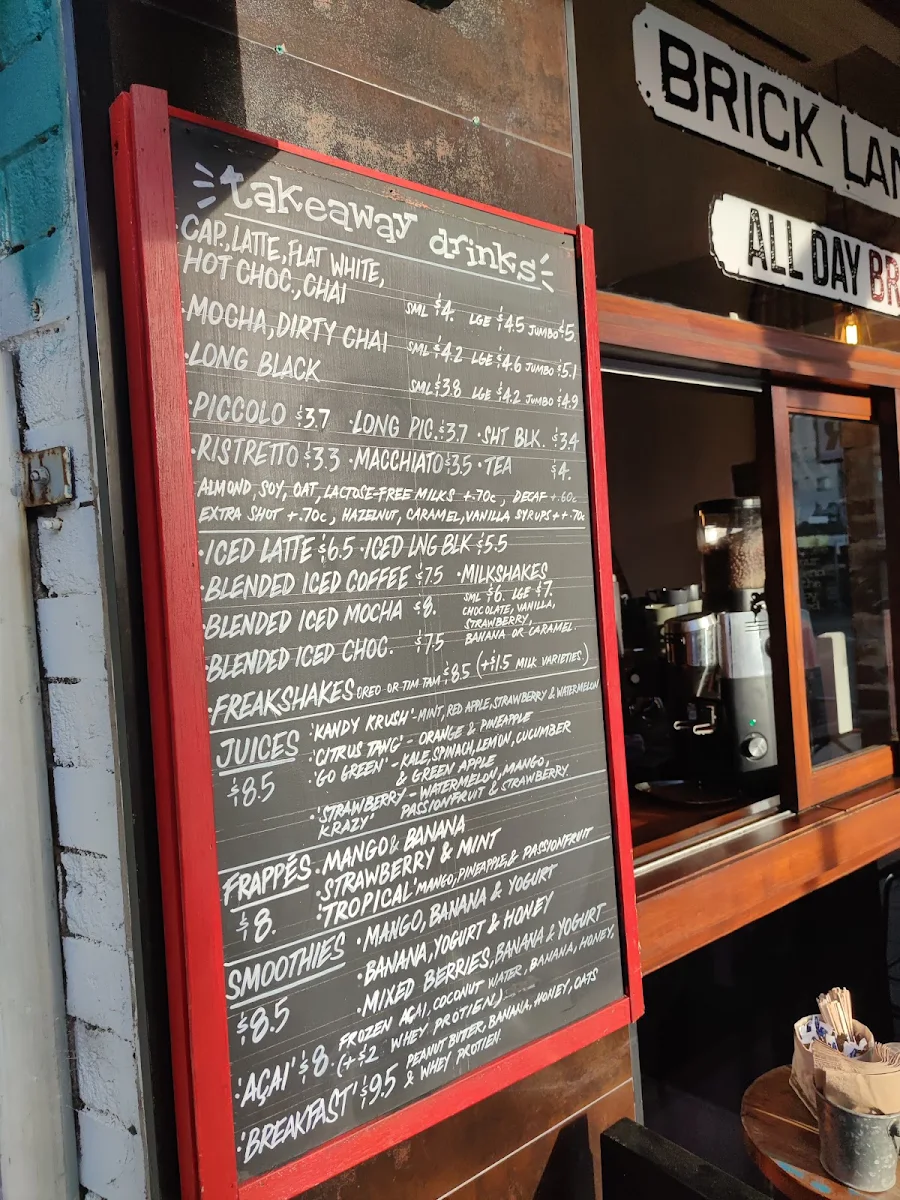 BRICK LAN
ALL DAY BR
takeaway drinks
CAP., LATTE, FLAT WHITE,
HOT CHOC., CHAI SML $4. LGE $4.5 JUMBO $5.
·MOCHA, DIRTY CHAI SML $4.2 LGE $4.6 JUMBO $5.1
·LONG BLACK SML $3.8 LGE $4.2 JUMBO $4.9
·PICCOLO $3.7 ·LONG PIC. $3.7 ·SHT BLK. $3.4
·RISTRETTO $3.3 ·MACCHIATO $3.5 ·TEA $4.
ALMOND, SOY, OAT, LACTOSE-FREE MILKS +.70c, DECAF +.60c
EXTRA SHOT +.70c, HAZELNUT, CARAMEL, VANILLA SYRUPS + +.70c
·ICED LATTE $6.5 ·ICED LNG BLK $5.5
·BLENDED ICED COFFEE $7.5
·BLENDED ICED MOCHA $8.
·BLENDED ICED CHOC. $7.5
·MILKSHAKES
SML $6. LGE $7.
CHOCOLATE, VANILLA,
STRAWBERRY,
BANANA OR CARAMEL.
·FREAKSHAKES OREO OR TIM TAM $8.5 (+$1.5 MILK VARIETIES)
JUICES
$8.5
'KANDY KRUSH' - MINT, RED APPLE, STRAWBERRY & WATERMELON
'CITRUS TANG' - ORANGE & PINEAPPLE
'GO GREEN' - KALE, SPINACH, LEMON, CUCUMBER
& GREEN APPLE
·'STRAWBERRY - WATERMELON, MANGO,
KRAZY' PASSIONFRUIT & STRAWBERRY.
FRAPPÉS
$8.
·MANGO & BANANA
·STRAWBERRY & MINT
·'TROPICAL' MANGO, PINEAPPLE & PASSIONFRUIT
SMOOTHIES
$8.5
·MANGO, BANANA & YOGURT
·BANANA, YOGURT & HONEY
·MIXED BERRIES, BANANA & YOGURT
·'AÇAI' $8. FROZEN AÇAI, COCONUT WATER, BANANA, HONEY,
(+$2 WHEY PROTIEN.)
·'BREAKFAST' $9.5 PEANUT BUTTER, BANANA, HONEY, OATS
& WHEY PROTIEN.